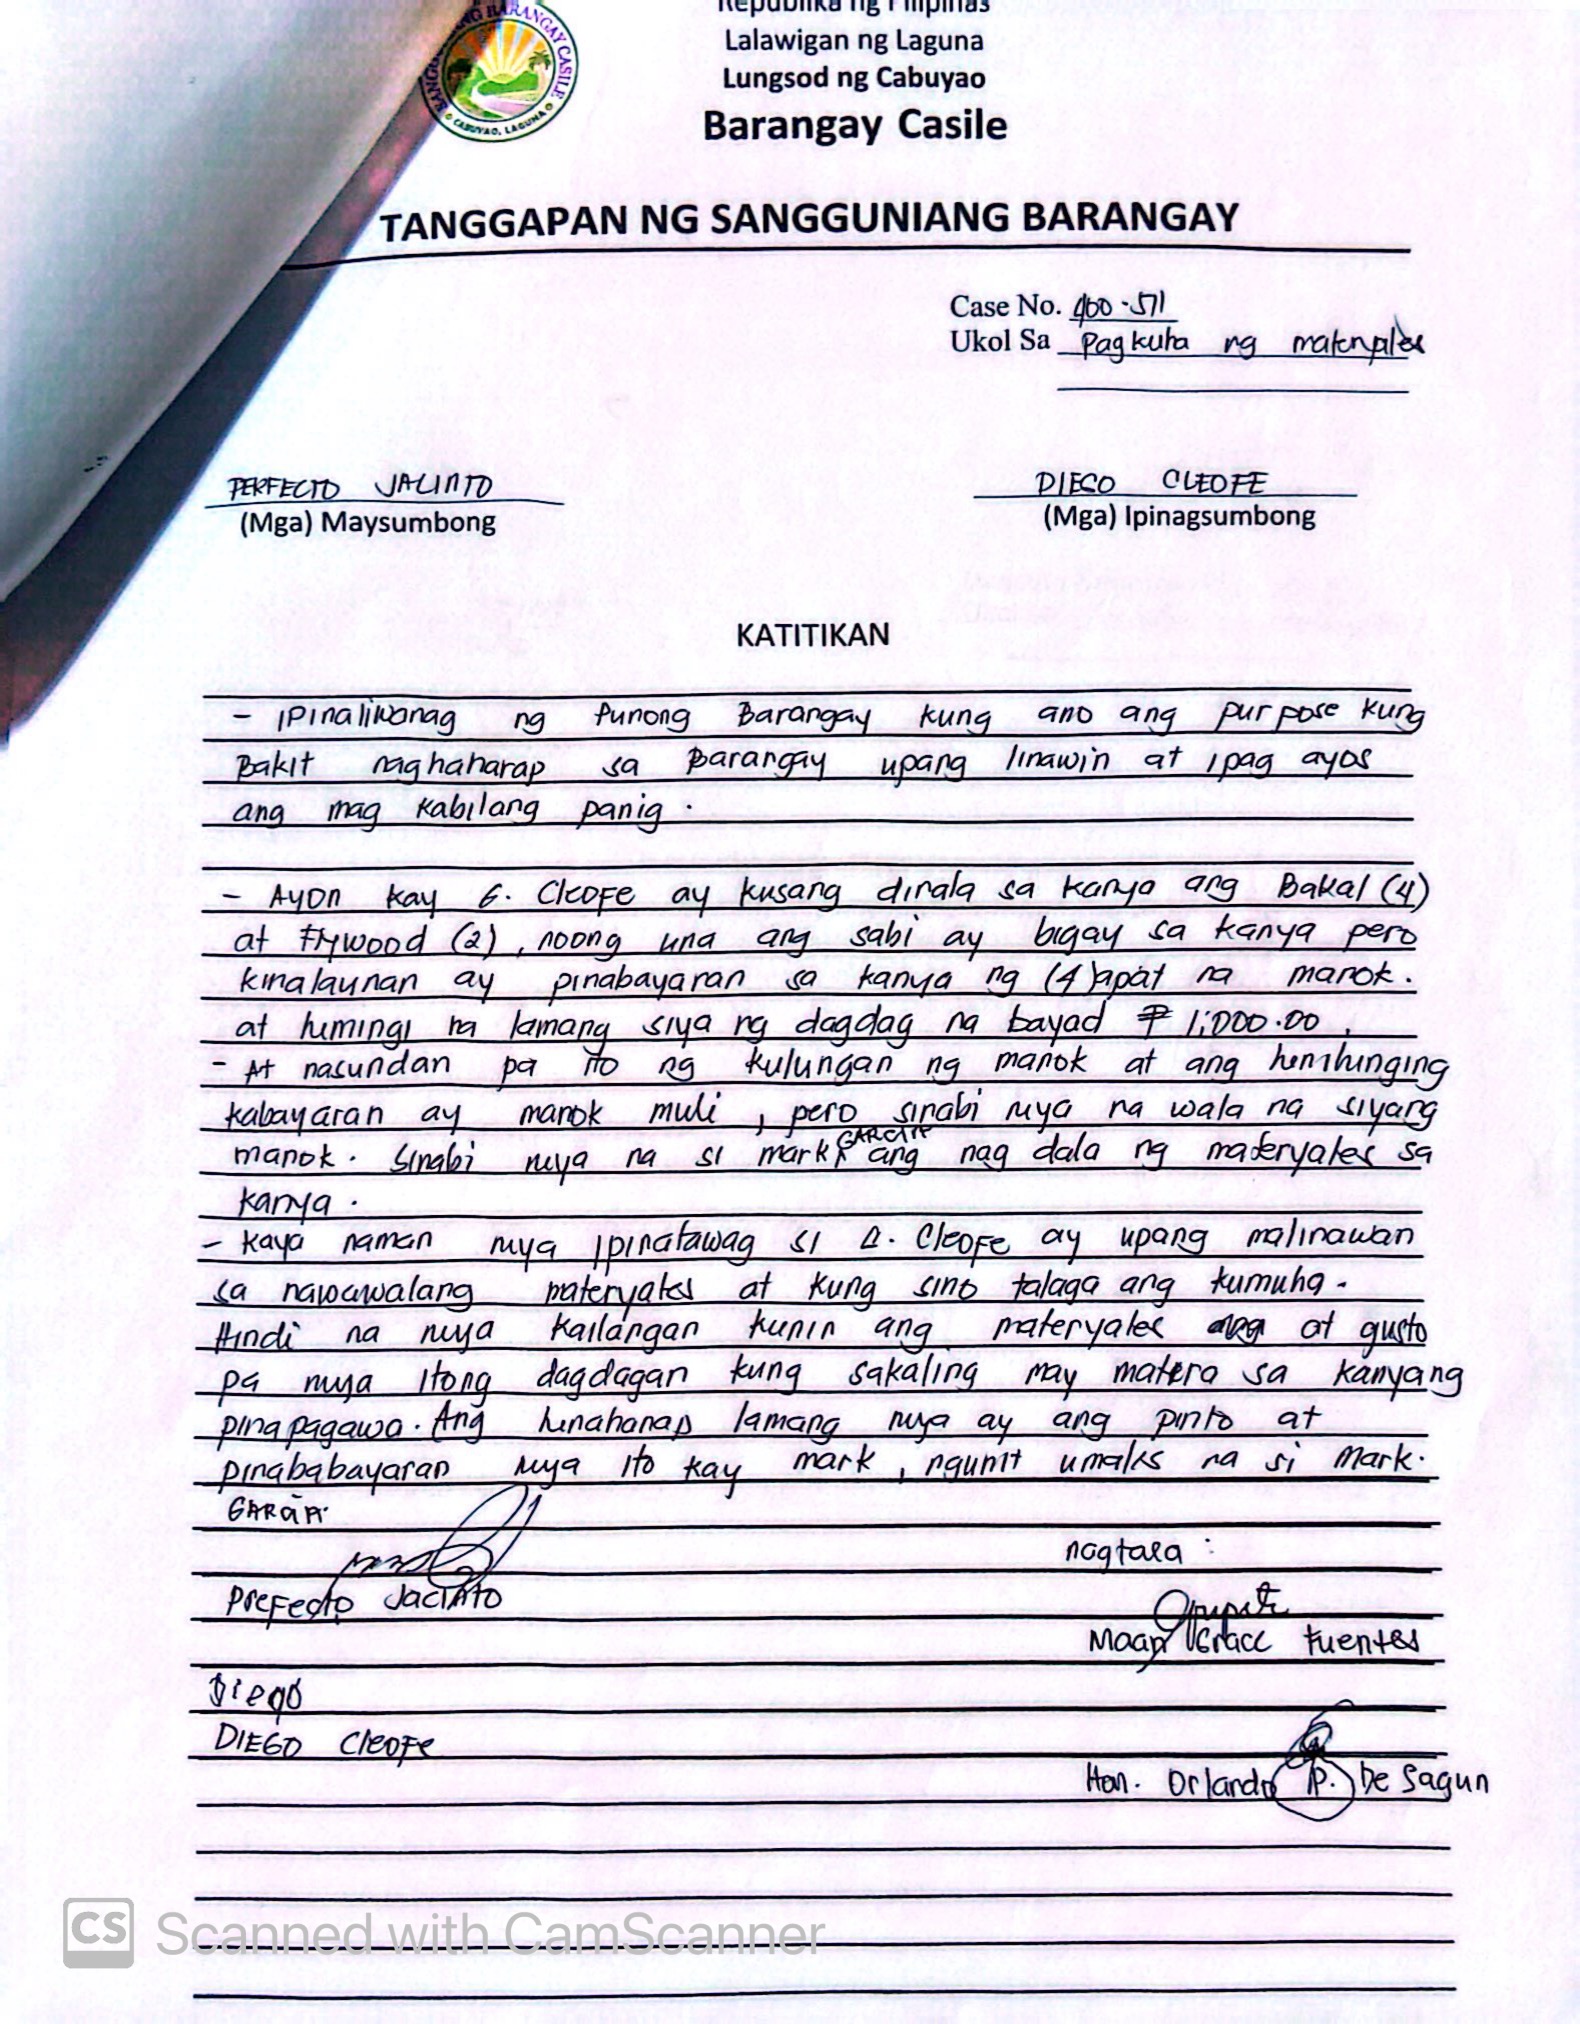 Republika ng Pilipinas
Lalawigan ng Laguna
Lungsod ng Cabuyao
Barangay Casile
SANGGUNIANG BARANGAY CASILE
CABUYAO, LAGUNA
TANGGAPAN NG SANGGUNIANG BARANGAY
Case No. 400-571
Ukol Sa Pagkuha ng materyales
PERFECTO JACINTO
DIEGO CLEOFE
(Mga) Maysumbong
(Mga) Ipinagsumbong
KATITIKAN
- Ipinaliwanag ng Punong Barangay kung ano ang purpose kung
Bakit naghaharap sa Barangay upang linawin at ipag ayos
ang mag kabilang panig.
- Ayon kay G. Cleofe ay kusang dinala sa kanya ang Bakal (4)
at Flywood (2), noong una ang sabi ay bigay sa kanya pero
kinalaunan ay pinabayaran sa kanya ng (4) apat na manok.
at humingi na lamang siya ng dagdag na bayad ₱ 1,000.00.
- At nasundan pa ito ng kulungan ng manok at ang hinihinging
kabayaran ay manok muli, pero sinabi nya na wala na siyang
manok. Sinabi nya na si mark GARCIA ang nag dala ng materyales sa
kanya.
- Kaya naman nya ipinatawag si D. Cleofe ay upang malinawan
sa nawawalang materyales at kung sino talaga ang kumuha.
Hindi na nya kailangan kunin ang materyales at gusto
pa nya itong dagdagan kung sakaling may matera sa kanyang
pinapagawa. Ang hinahanap lamang nya ay ang pinto at
pinababayaran nya ito kay mark, ngunit umalis na si Mark.
GARCIA.
nagtala :
Prefecto Jacinto
Maan Grace Fuentes
Diego
DIEGO Cleofe
Hon. Orlando P. De Sagun
CS Scanned with CamScanner